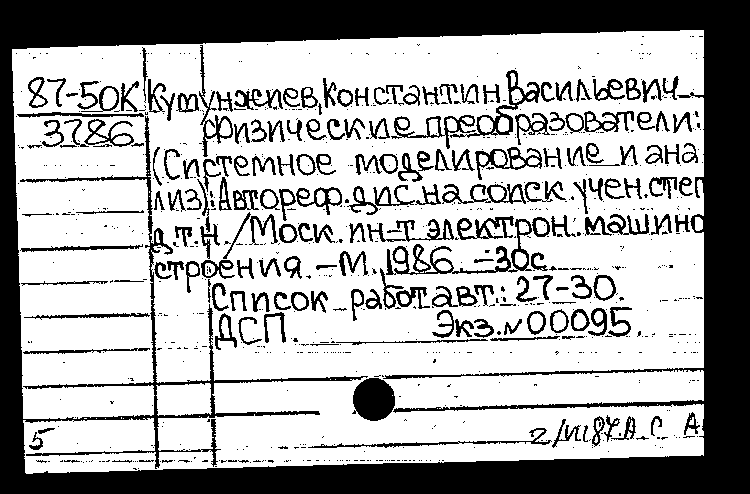 87-50К Кутунжиев, Константин Васильевич.
3786 Физические преобразователи:
(Системное моделирование и ана
лиз): Автореф. дис. на соиск. учен. степ
д.т.н. / Моск. ин-т электрон. машино
строения. – М., 1986. – 30с.
Список работ авт.: 27-30.
ДСП. Экз. № 00095.
5